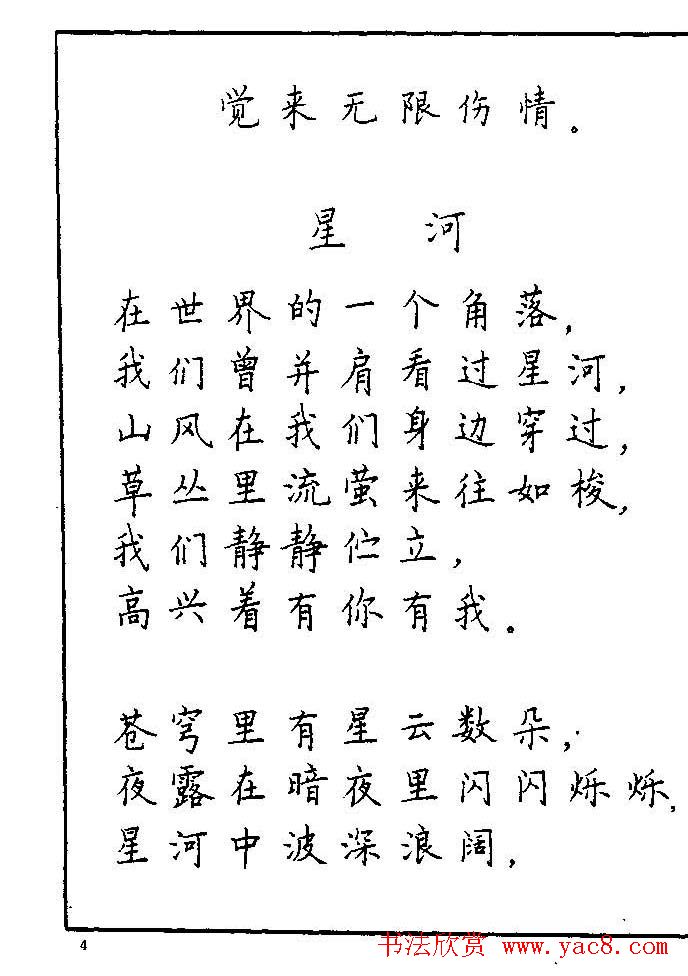 觉来无限伤情。
星 河
在世界的一个角落，
我们曾并肩看过星河，
山风在我们身边穿过，
草丛里流萤来往如梭，
我们静静伫立，
高兴着有你有我。
苍穹里有星云数朵，
夜露在暗夜里闪闪烁烁，
星河中波深浪阔，
4
书法欣赏 www.yac8.com